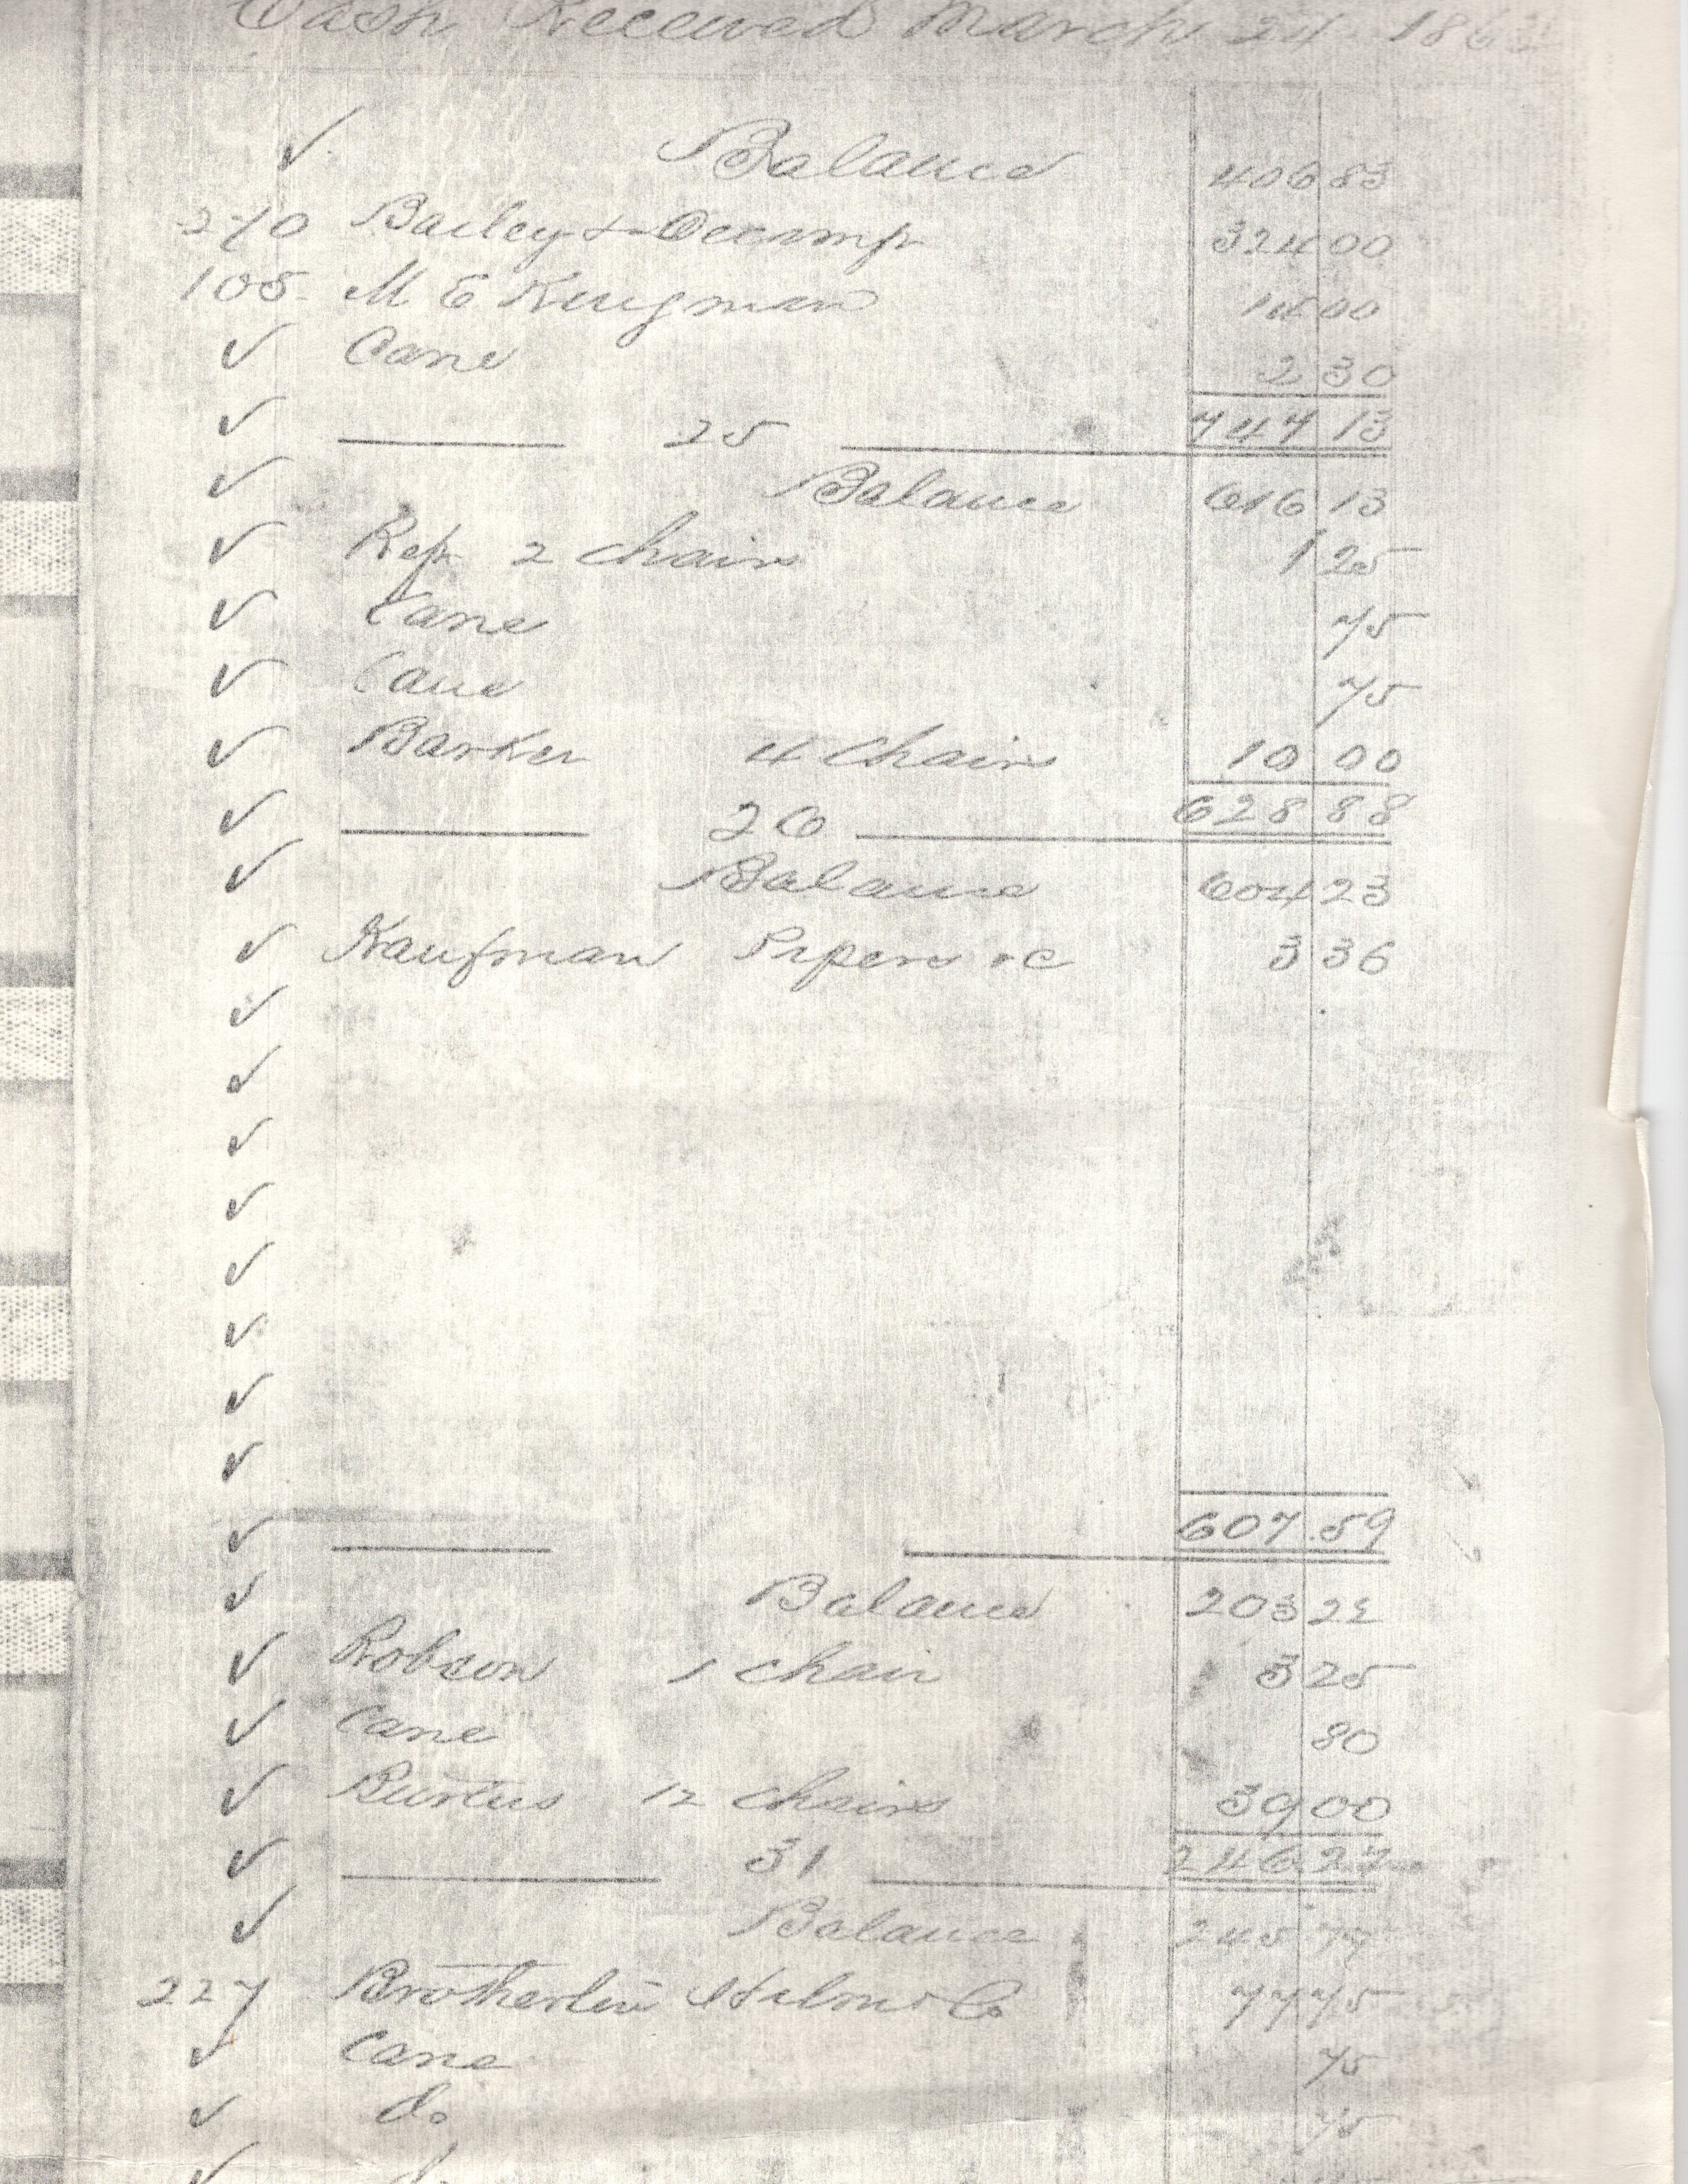 Cash Received March 24 186
✓ Balance 406 83
270 Bailey & Decamp 324 00
108 M E Kingman 14 00
✓ Cane 2 30
✓ 25 747 13
✓ Balance 616 13
✓ Rep 2 chairs 1 25
✓ Cane 75
✓ Cane 75
✓ Barker 4 Chairs 10 00
✓ 26 628 88
✓ Balance 604 23
✓ Kaufman &c 3 36
✓
✓
✓
✓
✓
✓
✓
✓
✓ 607.59
✓ Balance 203 22
✓ Robson 1 chair 3 25
✓ Cane 80
✓ 12 chairs 39 00
✓ 31 246 27
✓ Balance 245 77
227 Brotherlin Halm & Co 77 75
✓ Cane 75
✓ do 75
✓